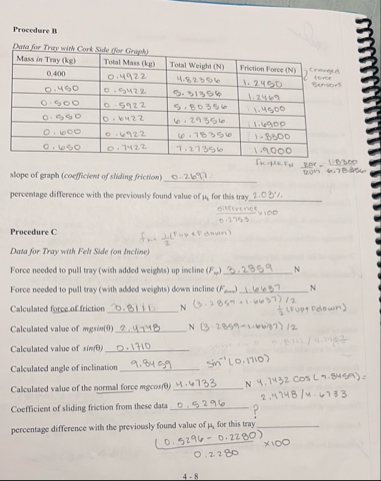 Procedure B
Data for Tray with Cork Side (for Graph)
Mass in Tray (kg) Total Mass (kg) Total Weight (N) Friction Force (N)
0.400 0.4922 4.82356 1.2450
0.450 0.5422 5.31356 1.2469
0.500 0.5922 5.80356 1.4500
0.550 0.6422 6.29356 1.6900
0.600 0.6922 6.78356 1.8300
0.650 0.7422 7.27356 1.9000
changed force sensors
slope of graph (coefficient of sliding friction) 0.2691
percentage difference with the previously found value of μk for this tray
difference
×100
Procedure C
Data for Tray with Felt Side (on Incline)
Force needed to pull tray (with added weights) up incline (Fup) 3.2859 N
Force needed to pull tray (with added weights) down incline (Fdown) 1.6637 N
Calculated force of friction 0.8111 N (3.2859-1.6637)/2
½(Fup+Fdown)
Calculated value of mgsin(θ) 2.4748 N (3.2859-1.6637)/2
Calculated value of sin(θ) 0.1710
Calculated angle of inclination 9.8459 sin⁻¹(0.1710)
Calculated value of the normal force mgcos(θ) 4.6733 N 4.7432 cos(9.8459)=
Coefficient of sliding friction from these data 0.5296 2.4748/4.6733
?
percentage difference with the previously found value of μk for this tray
(0.5296-0.2280) ×100
0.2280
4 - 8